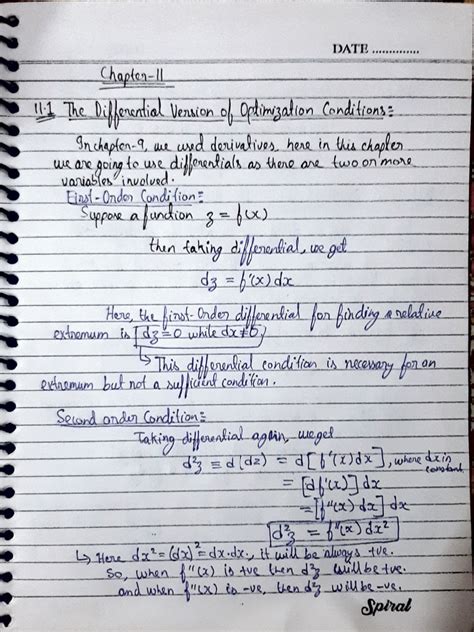 DATE ..............
Chapter-11
11.1 The Differential Version of Optimization Conditions:=
In chapter-9, we used derivatives, here in this chapter
we are going to use differentials as there are two or more
variables involved.
First-Order Condition:=
Suppose a function z = f(x)
then taking differential, we get
dz = f'(x) dx
Here, the first-Order differential for finding a relative
extremum is [dz=0 while dx≠0.]
↳ This differential condition is necessary for an
extremum but not a sufficient condition.
Second order Condition:=
Taking differential again, we get
d²z ≡ d(dz) = d[f'(x)dx], where dx is constant
= [df'(x)] dx
= [f''(x) dx] dx
d²z = f''(x) dx²
↳ Here dx² = (dx)² = dx.dx., it will be always +ve.
So, when f''(x) is +ve then d²z will be +ve.
and when f''(x) is -ve, then d²z will be -ve.
Spiral